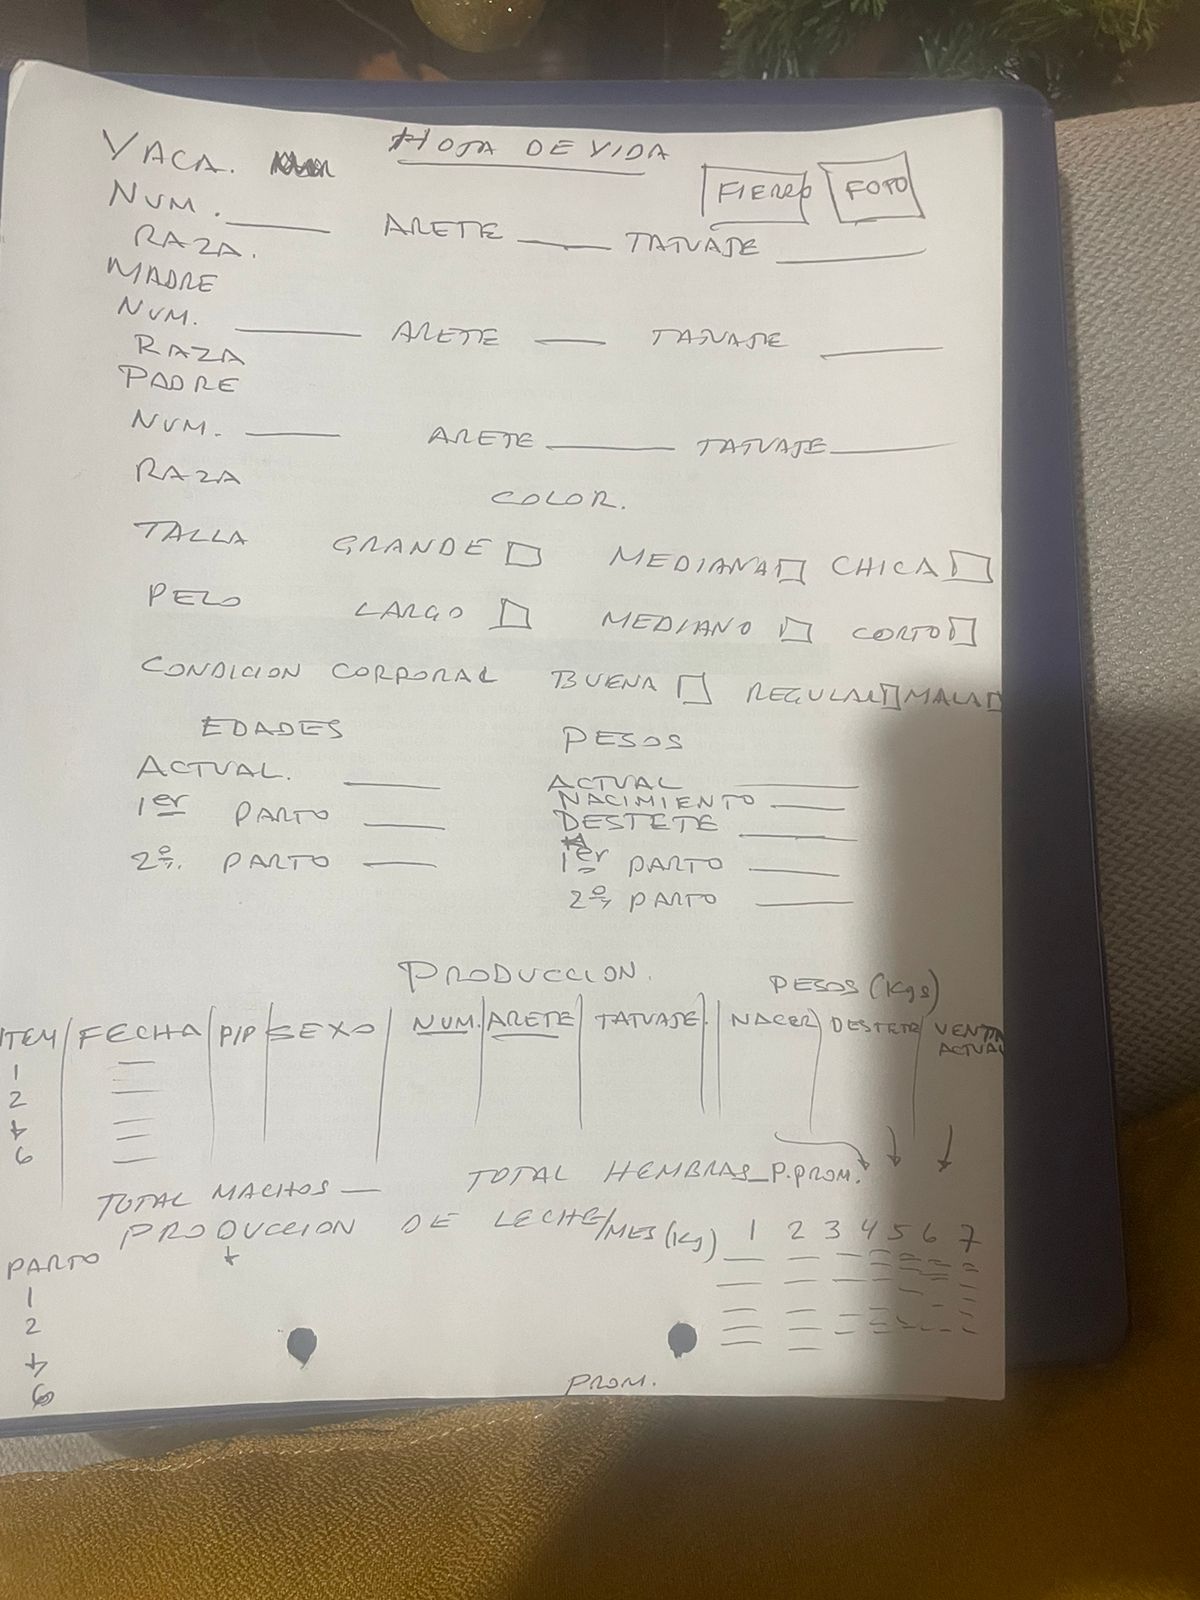 HOJA DE VIDA
VACA.
FIERRO FOTO
NUM. ARETE TATUAJE
RAZA.
MADRE
NUM. ARETE TATUAJE
RAZA
PADRE
NUM. ARETE TATUAJE
RAZA
COLOR.
TALLA GRANDE MEDIANA CHICA
PELO LARGO MEDIANO CORTO
CONDICION CORPORAL BUENA REGULAR MALA
EDADES PESOS
ACTUAL. ACTUAL
NACIMIENTO
1er PARTO DESTETE
2º. PARTO 1er PARTO
2º, PARTO
PRODUCCION.
PESOS (Kgs)
ITEM FECHA P/P SEXO NUM. ARETE TATUAJE. NACER DESTETE VENTA
ACTUAL
1
2
4
6
TOTAL MACHOS TOTAL HEMBRAS P. PROM.
PRODUCCION DE LECHE/MES (Kg) 1 2 3 4 5 6 7
PARTO
1
2
4
6
PROM.